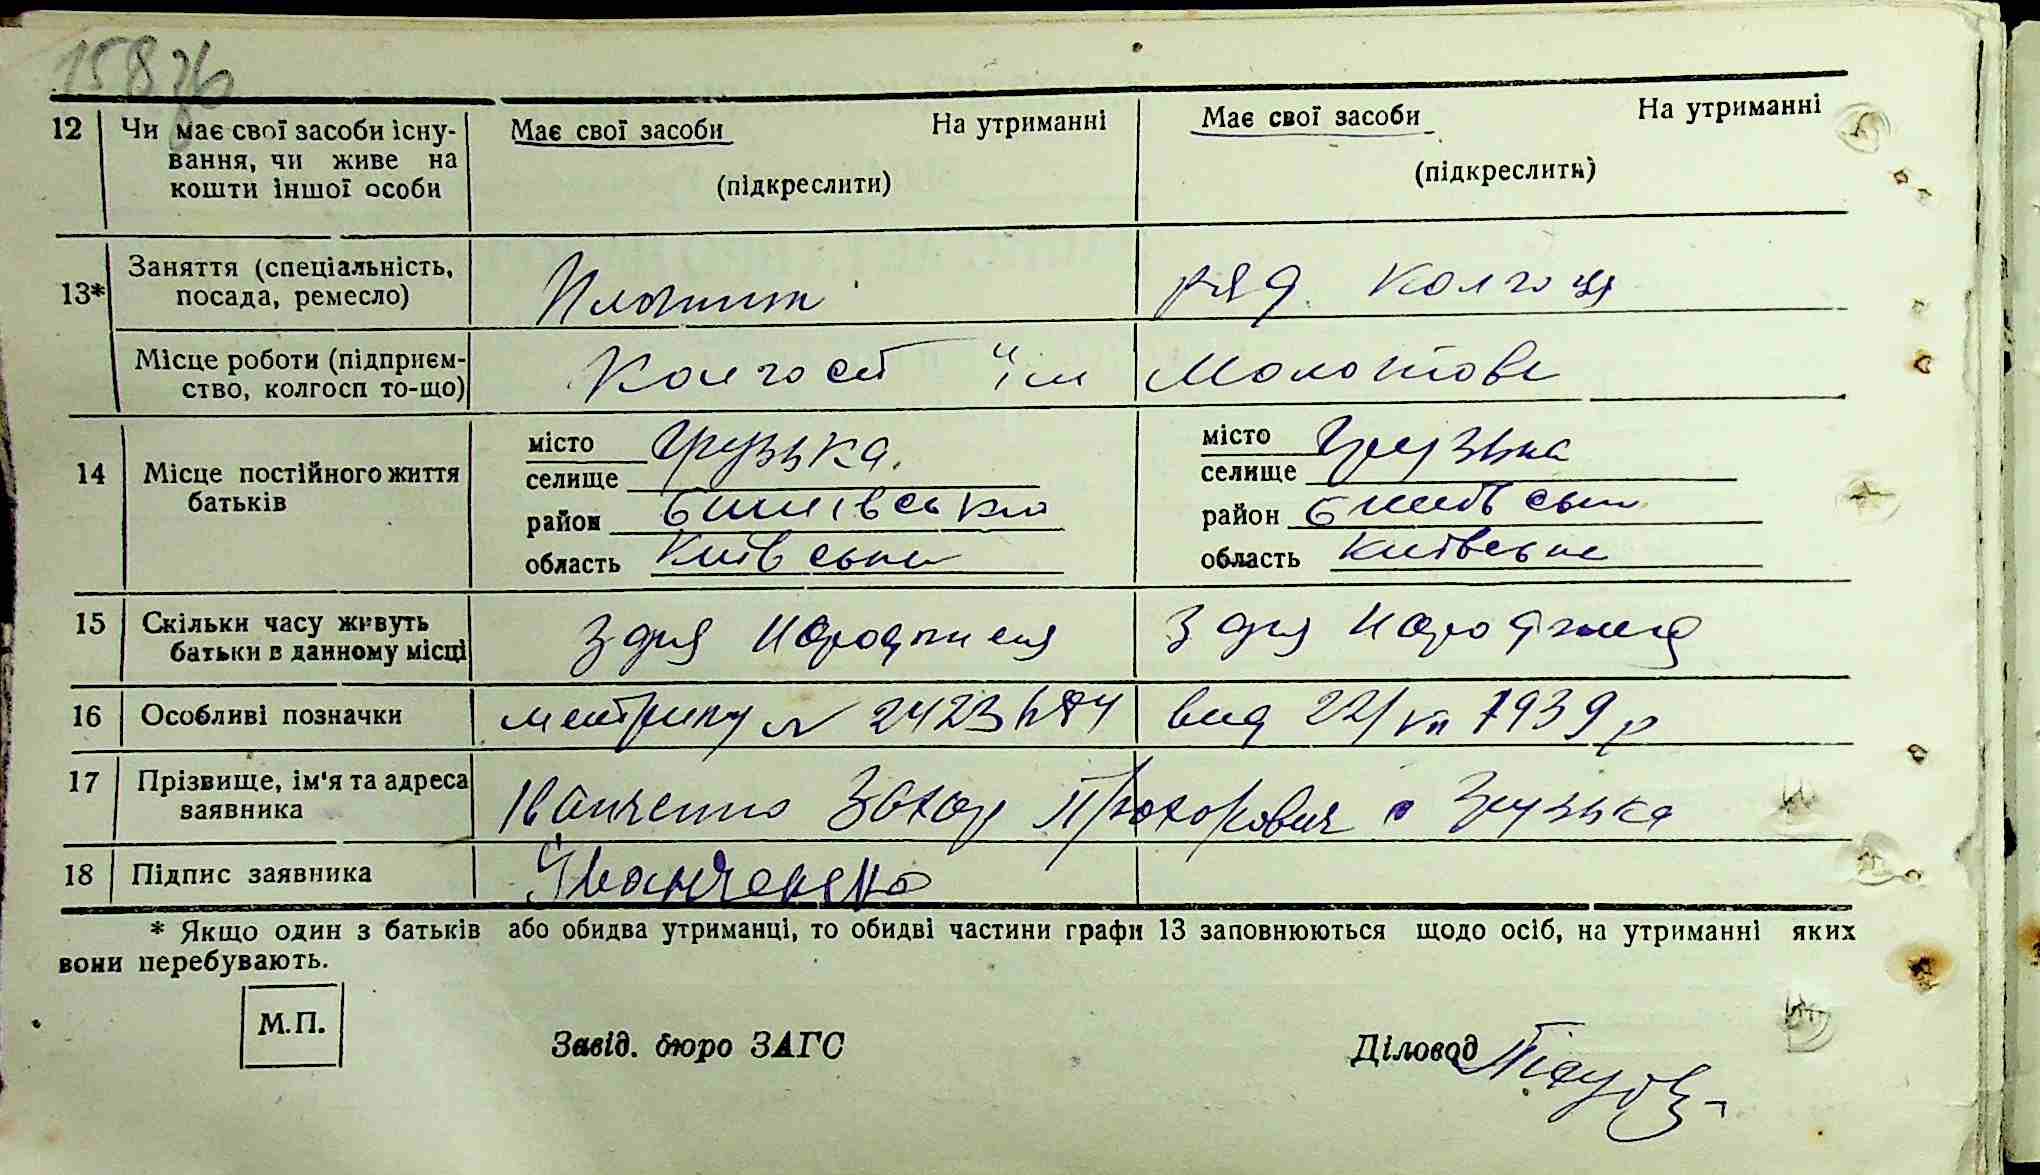 158зв
12 Чи має свої засоби існу-
вання, чи живе на
кошти іншої особи
Має свої засоби На утриманні
(підкреслити)
Має свої засоби На утриманні
(підкреслити)
13* Заняття (спеціальність,
посада, ремесло)
ряд. колгосп
Місце роботи (підприєм-
ство, колгосп то-що)
Колгосп ім Молотова
14 Місце постійного життя
батьків
місто
селище Грузька
район Бишівський
область Київська
місто
селище Грузька
район Бишівськ
область Київська
15 Скільки часу живуть
батьки в данному місці
З дня народження
З дня народження
16 Особливі позначки
метрику № вид 22/VII 1939 р
17 Прізвище, ім'я та адреса
заявника
Іванченко Захар Прохорович с Грузька
18 Підпис заявника
Іванченко
* Якщо один з батьків або обидва утриманці, то обидві частини графи 13 заповнюються щодо осіб, на утриманні яких
вони перебувають.
М.П.
Завід. бюро ЗАГС
Діловод